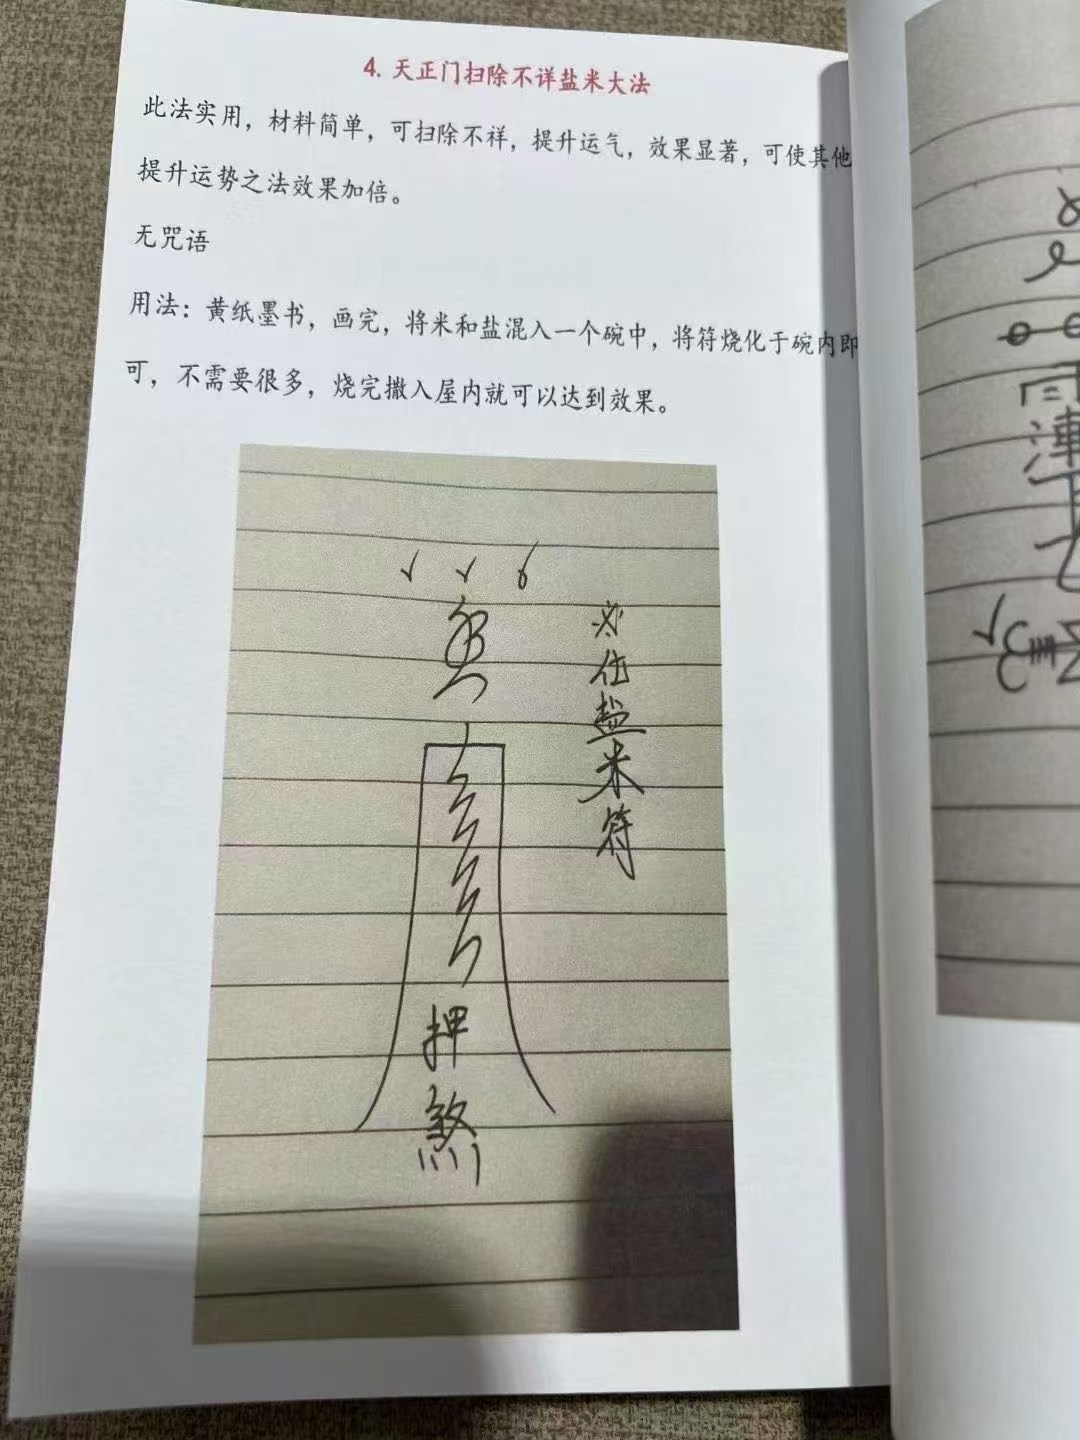 4. 天正门扫除不详盐米大法
此法实用，材料简单，可扫除不祥，提升运气，效果显著，可使其他
提升运势之法效果加倍。
无咒语
用法：黄纸墨书，画完，将米和盐混入一个碗中，将符烧化于碗内即
可，不需要很多，烧完撒入屋内就可以达到效果。
盐米符
押
煞